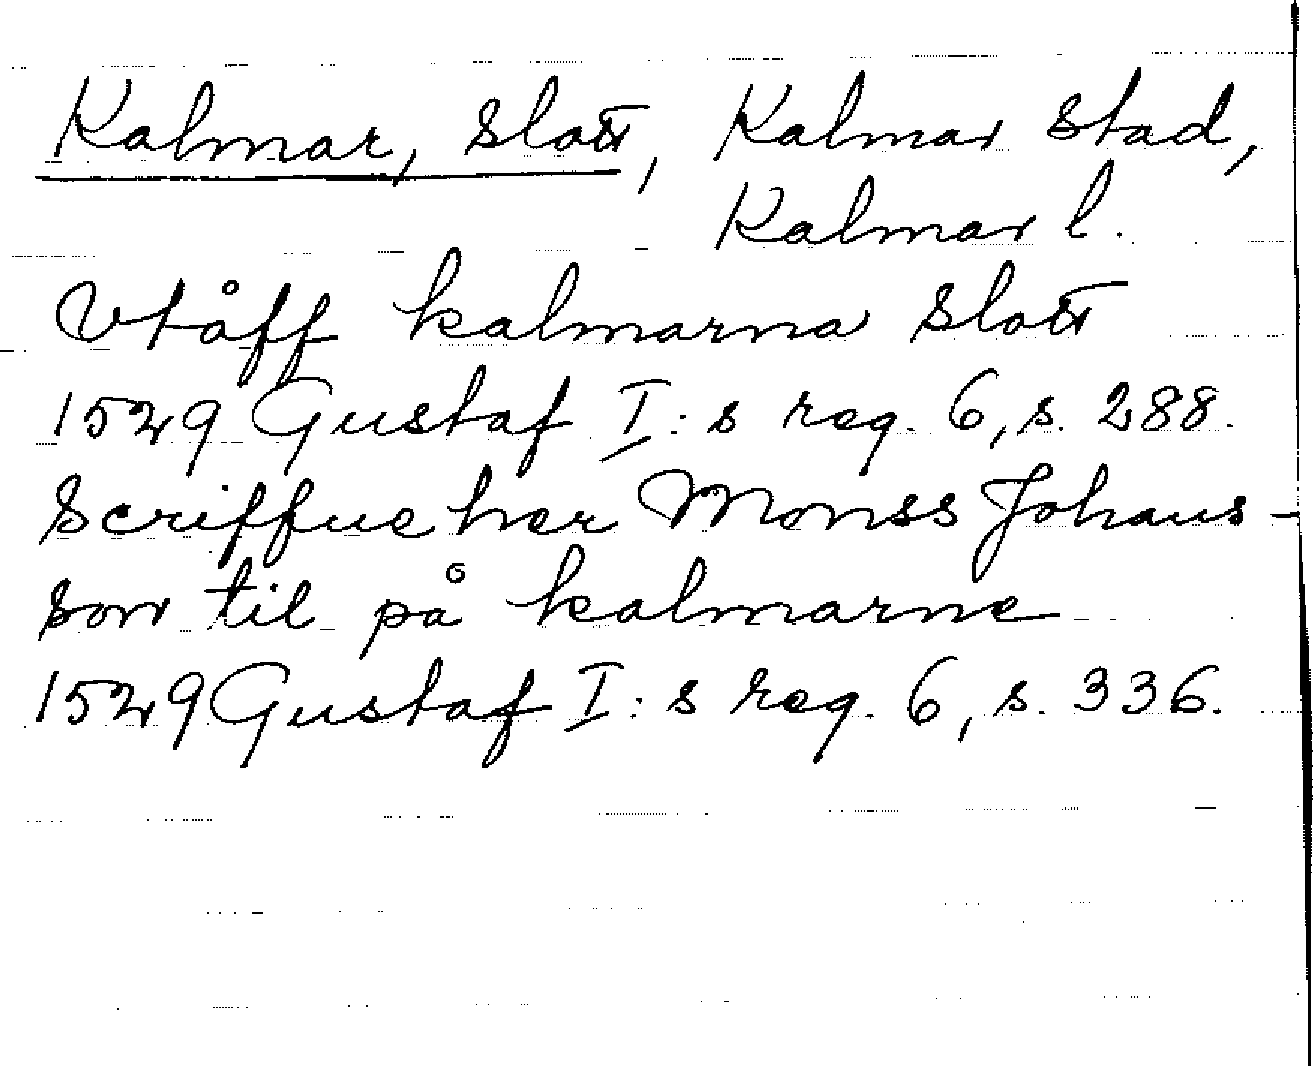 Kalmar, slott, Kalmar stad,
Kalmar l.
Vtåff kalmarna slott
1529 Gustaf I:s reg. 6, s. 288.
Scriffue her Monss Johans-
son til på kalmarne
1529 Gustaf I:s reg. 6, s. 336.